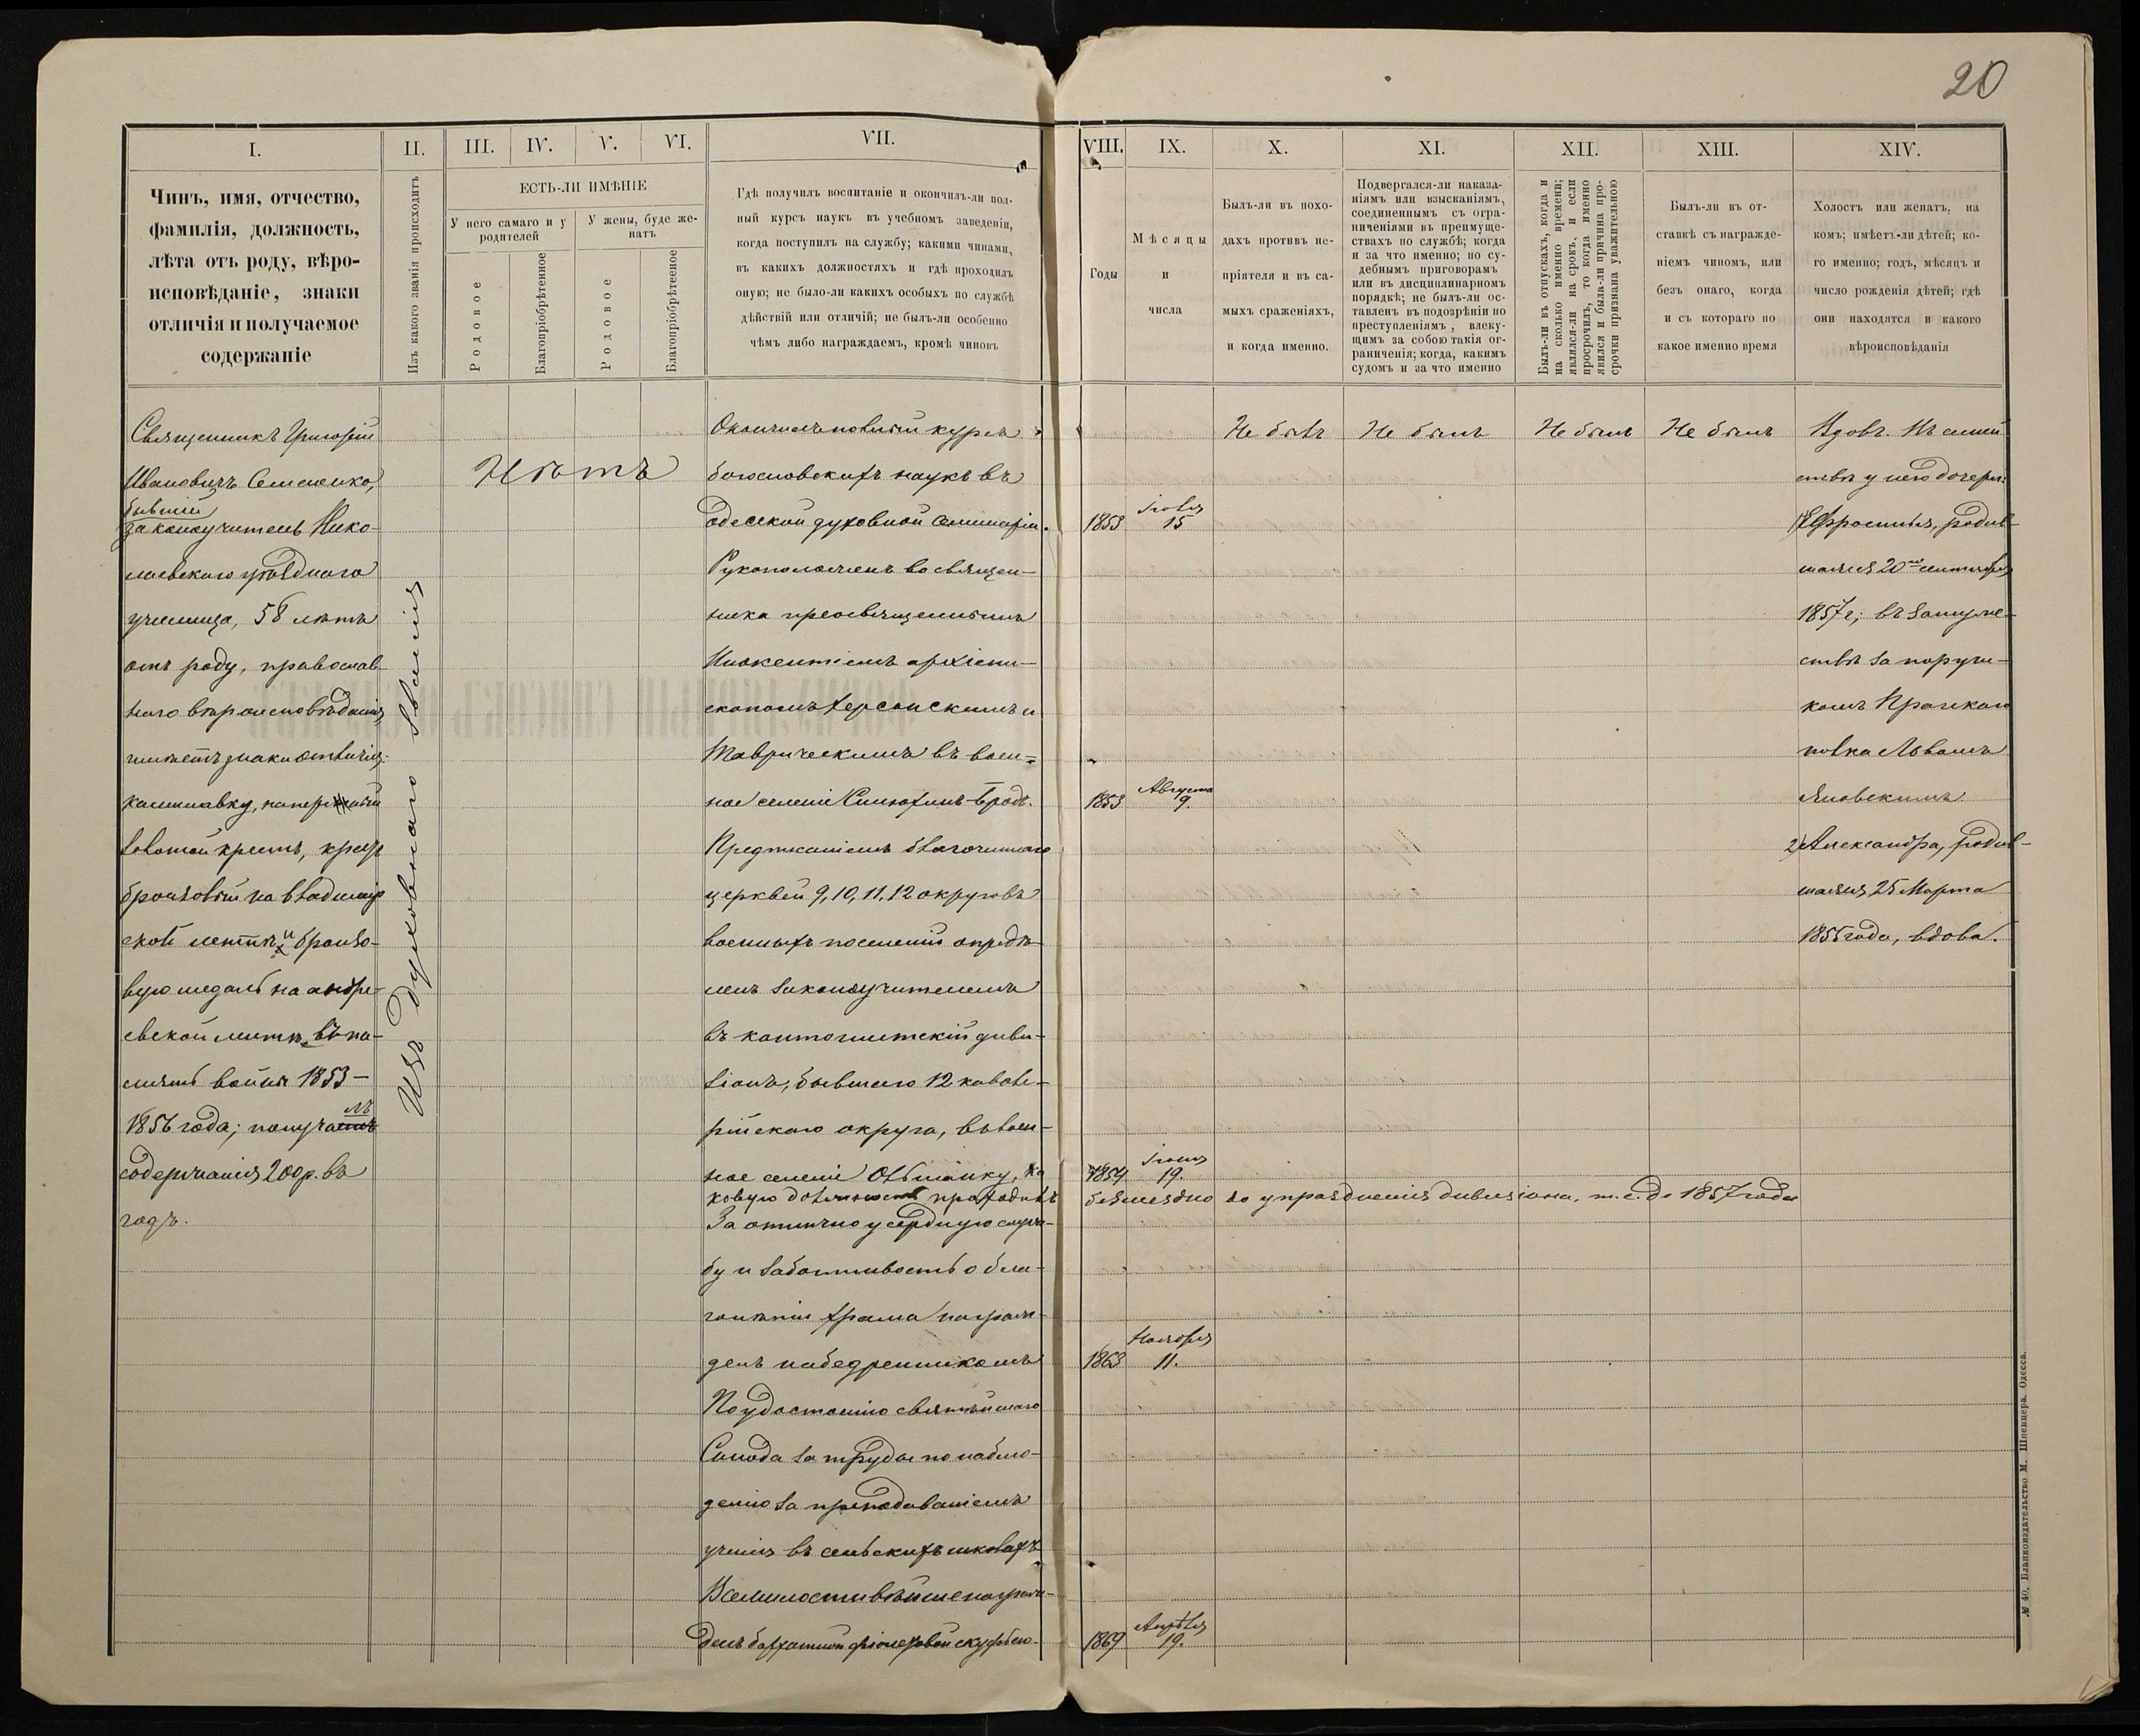 20
I.
II.
III.
IV.
V.
VI.
VII.
VIII.
IX.
X.
XI.
XII.
XIII.
XIV.
Чинъ, имя, отчество,
фамилія, должность,
лѣта отъ роду, вѣро-
исповѣданіе, знаки
отличія и получаемое
содержаніе
Изъ какого званія происходитъ
ЕСТЬ-ЛИ ИМѢНІЕ
У него самаго и у
родителей
У жены, буде же-
натъ
Родовое
Благопріобрѣтенное
Родовое
Благопріобрѣтенное
Гдѣ получилъ воспитаніе и окончилъ-ли пол-
ный курсъ наукъ въ учебномъ заведеніи,
когда поступилъ на службу; какими чинами,
въ какихъ должностяхъ и гдѣ проходилъ
оную; не было-ли какихъ особыхъ по службѣ
дѣйствій или отличій; не былъ-ли особенно
чѣмъ либо награждаемъ, кромѣ чиновъ
Годы
Мѣсяцы
и
числа
Былъ-ли въ похо-
дахъ противъ не-
пріятеля и въ са-
мыхъ сраженіяхъ,
и когда именно.
Подвергался-ли наказа-
ніямъ или взысканіямъ,
соединеннымъ съ огра-
ниченіями въ преимуще-
ствахъ по службѣ; когда
и за что именно; по су-
дебнымъ приговорамъ
или въ дисциплинарномъ
порядкѣ; не былъ-ли ос-
тавленъ въ подозрѣніи по
преступленіямъ, влеку-
щимъ за собою такія ог-
раниченія; когда, какимъ
судомъ и за что именно
Былъ-ли въ отпускахъ, когда и
на сколько именно времени;
явился-ли на срокъ, и если
просрочилъ, то когда именно
явился и была-ли причина про-
срочки признана уважительною
Былъ-ли въ от-
ставкѣ съ награжде-
ніемъ чиномъ, или
безъ онаго, когда
и съ котораго по
какое именно время
Холостъ или женатъ, на
комъ; имѣетъ-ли дѣтей; ко-
го именно; годъ, мѣсяцъ и
число рожденія дѣтей; гдѣ
они находятся и какого
вѣроисповѣданія
Священникъ Григорій
Ивановичъ Семененко,
бывшій
законоучитель Нико-
лаевскаго уѣзднаго
училища, 58 лѣтъ
отъ роду, православ-
наго вѣроисповѣданія,
имѣетъ знаки отличія:
камилавку, наперсный
золотой крестъ, крестъ
бронзовый на владимір
ской лентѣ и бронзо-
вую медаль на андре-
евской лентѣ въ па-
мять войны 1853-
1856 года; получалъ
содержанія 200 р. въ
годъ.
Изъ духовнаго званія
Нѣтъ
Окончилъ полный курсъ
богословскихъ наукъ въ
одесской духовной семинаріи.
1853
Іюля
15
Рукоположенъ во священ-
ника преосвященнымъ
Инокентіемъ архіепи-
скопомъ Херсонскимъ и
Таврическимъ въ воен-
ное селеніе Синюхинъ-Бродъ.
1853
Августа
9.
Предписаніемъ благочиннаго
церквей 9, 10, 11, 12 округовъ
военныхъ поселеній опредѣ-
ленъ законоучителемъ
въ кантонистскій диви-
зіонъ, бывшаго 12 кавале-
рійскаго округа, въ воен-
ное селеніе Ольшанку, ка
1854
19.
ковую должность проходилъ безмездно до упраздненія дивизіона, т. е. до 1857 года
За отлично усердную служ-
бу и заботливость о бла-
голѣпіи храма награж-
денъ набедренникомъ
1863
Ноября
11.
По удостоенію святѣйшаго
Синода за труды по наблю-
денію за преподаваніемъ
ученія въ сельскихъ школахъ
Всемилостивѣйше награж-
денъ бархатной фіолетовой скуфьею.
1869
Апрѣля
19.
Не былъ
Не былъ
Не былъ
Не былъ
Вдовъ. Въ семей
ствѣ у него дочери:
1) Ефросинія, родив-
шаяся 20го сентября
1857 г; въ замуже-
ствѣ за поручи-
комъ Пражскаго
полка Львомъ
Яновскимъ
2) Александра, родив-
шаяся 25 Марта
1855 года, вдова.
№ 40. Бланкоиздательство М. Шпенцера. Одесса.